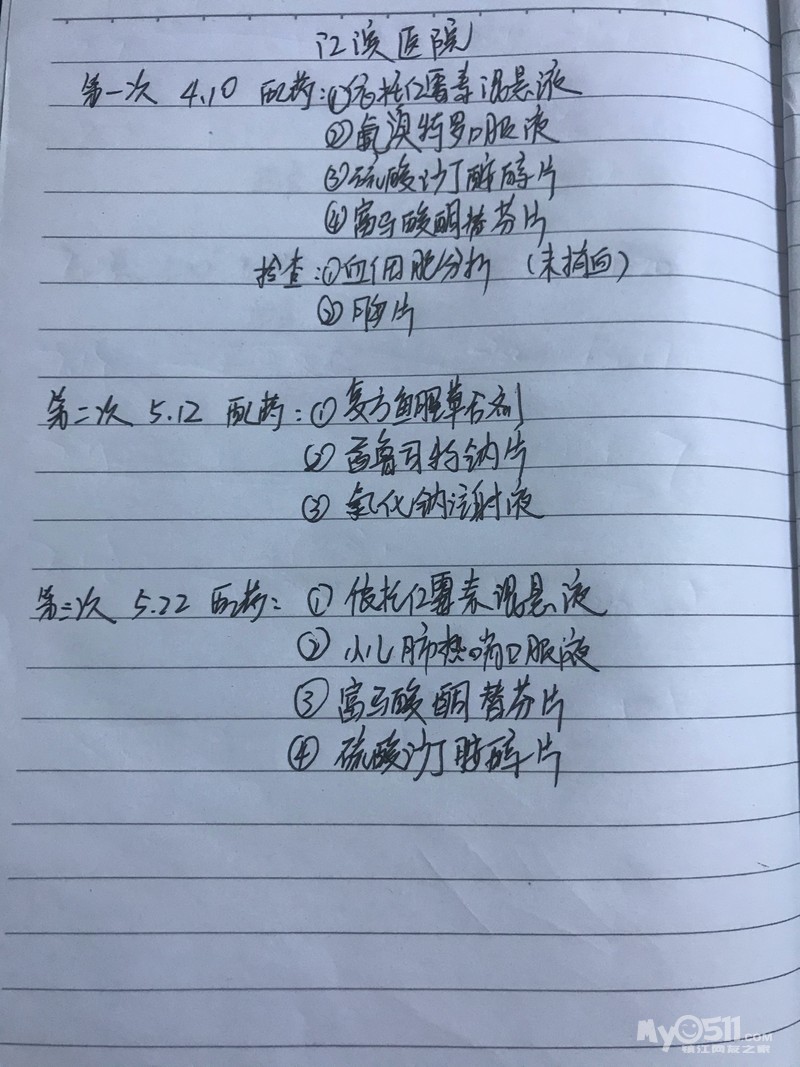 江滨医院
第一次 4.10 配药:①依托红霉素混悬液
②氨溴特罗口服液
③硫酸沙丁胺醇片
④富马酸酮替芬片
检查:①血细胞分析 (未摘回)
②胸片
第二次 5.12 配药:①复方鱼腥草合剂
②孟鲁司特钠片
③氯化钠注射液
第三次 5.22 配药: ① 依托红霉素混悬液
② 小儿肺热咳喘口服液
③ 富马酸酮替芬片
④ 硫酸沙丁胺醇片
MyO511.COM
镇江网友之家